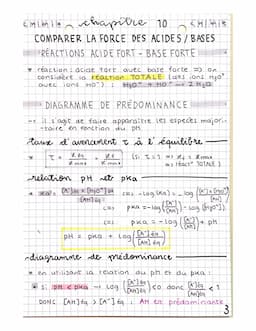 chapitre 10
COMPARER LA FORCE DES ACIDES / BASES
RÉACTIONS ACIDE FORT - BASE FORTE
* réaction : acide fort avec base forte => on
considère la réaction TOTALE (les ions H3O+
avec ions HO-) : H3O+ + HO- → 2 H2O
DIAGRAMME DE PRÉDOMINANCE
→ il s'agit de faire apparaître les espèces major-
-itaire en fonction du pH
taux d'avancement τ à l'équilibre
* τ = xf / xmax (si τ = 1 => xf = xmax
=> réact° TOTALE)
relation pH et pKa
* Ka = [A-]éq × [H3O+]éq / [AH]éq (=) -log(Ka) = -log([A-]×[H3O+] / [AH])
(=) pKa = -log([A-]/[AH]) - log([H3O+])
(=) pKa = -log([A-]/[AH]) + pH
pH = pKa + log([A-]éq / [AH]éq)
diagramme de prédominance
* en utilisant la relation du pH et du pKa :
si pH < pKa → log([A-]éq / [AH]éq) < 0 donc [A-]éq / [AH]éq < 1
DONC [AH]éq > [A-]éq : AH est prédominante
3